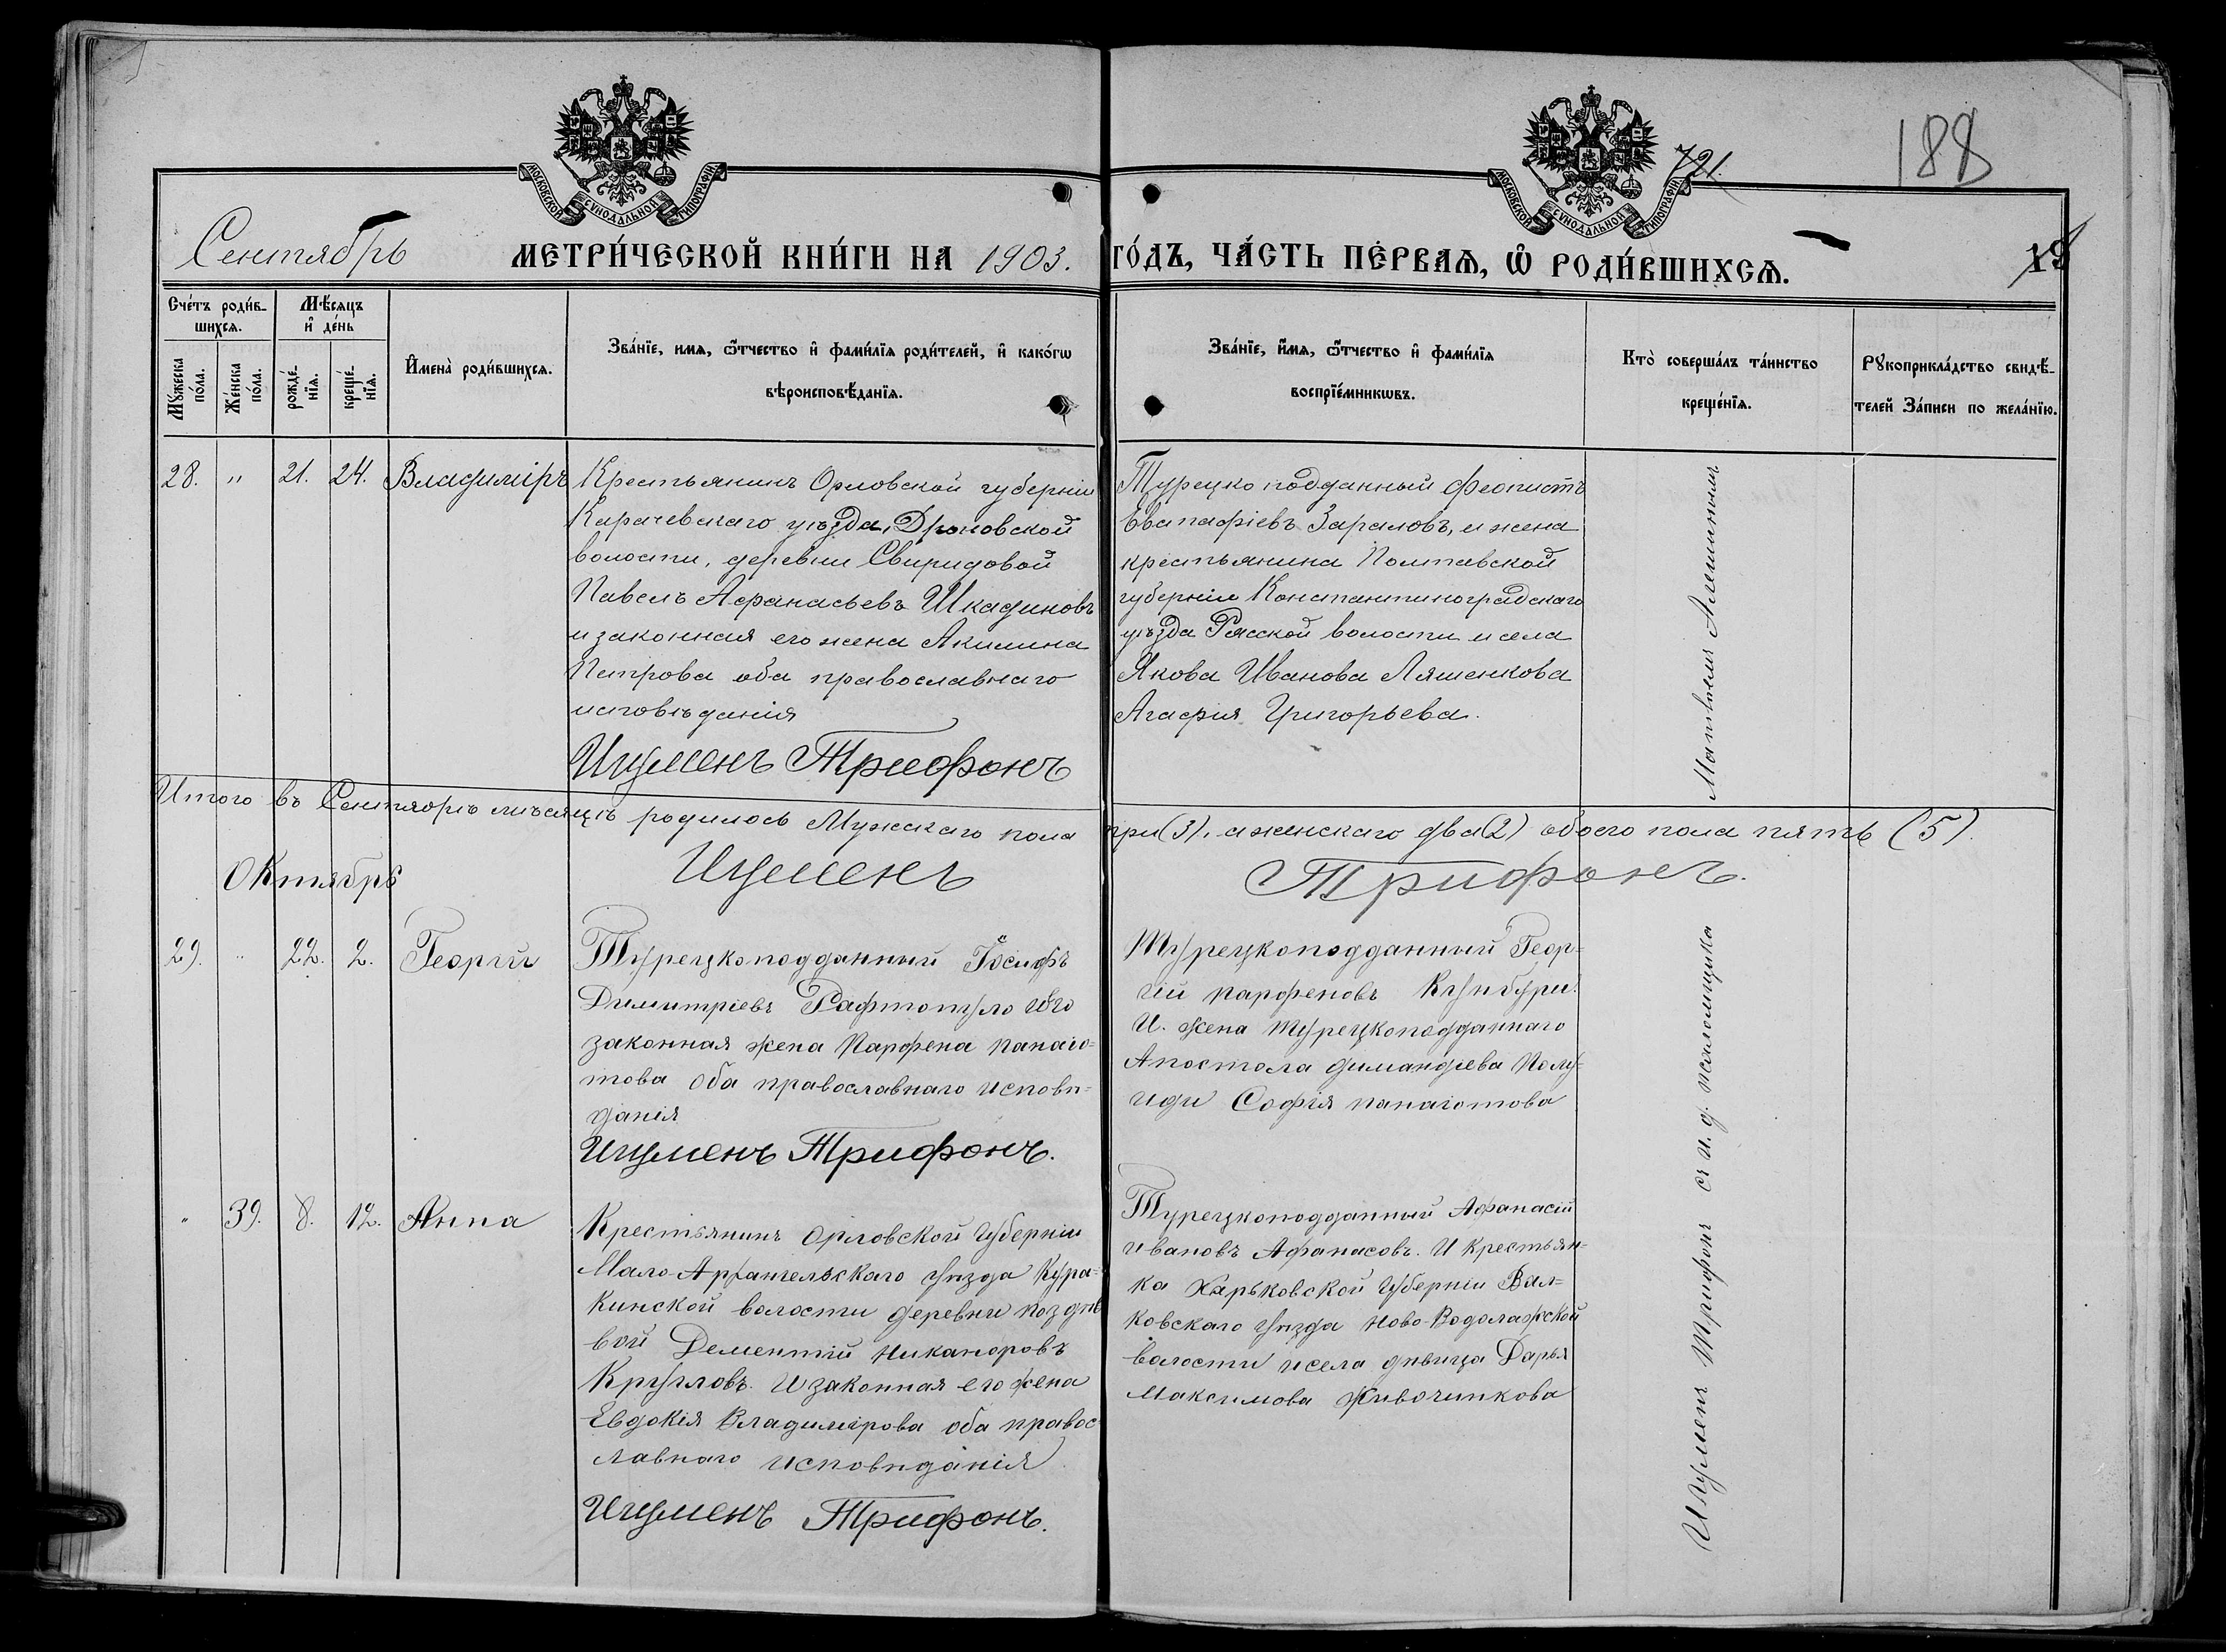 188
721.
МОСКОВСКОЙ СѴНОДАЛЬНОЙ ТИПОГРАФІИ
МОСКОВСКОЙ СѴНОДАЛЬНОЙ ТИПОГРАФІИ
Сентябрь
МЕТРИ́ЧЕСКОЙ КНИ́ГИ НА 1903. ГО́ДЪ, ЧА́СТЬ ПЕ́РВАѦ, Ѡ҆ РОДИ́ВШИХСѦ.
19
Сче́тъ роди́в-
шихсѧ.
Мѣ́сѧцъ
и҆ де́нь
Мꙋ́жеска
по́ла.
Же́нска
по́ла.
рожде́-
нїѧ.
креще́-
нїѧ.
И҆мена̀ роди́вшихсѧ.
Зва́нїе, имѧ, ѻ҆́тчество и҆ фами́лїѧ роди́телей, и҆ како́гѡ
вѣроисповѣ́данїѧ.
Зва́нїе, и҆́мѧ, ѻ҆́тчество и҆ фами́лїѧ
воспрїе́мникѡвъ.
Кто̀ соверша́лъ та́инство
креще́нїѧ.
Рꙋкоприкла́дство свидѣ́-
телей За́писи по жела́нїю.
28. " 21. 24. Владиміръ
Крестьянинъ Орловской губерніи
Карачевскаго уѣзда, Дроновской
волости, деревни Свиридовой
Павелъ Аѳанасьевъ Шкадиновъ
и законная его жена Акилина
Петрова оба православнаго
исповѣданія
Игуменъ Трифонъ
Турецко подданный Феописть
Евпафіевъ Зараловъ, и жена
крестьянина Полтавской
губерніи Константиноградскаго
уѣзда Рясской волости и села
Якова Иванова Ляшенкова
Агафия Григорьева.
Итого въ Сентябрѣ мѣсяцѣ родилось Мужскаго пола три (3). а женскаго два (2) обоего пола пять (5).
Игуменъ Трифонъ.
Октябрь
29. " 22. 2. Георгій
Турецкоподданный Іосифъ
Димитріевъ Рафтопуло його
законная жена Парфена панаіо-
това Оба православнаго исповѣ-
данія
Игуменъ Трифонъ.
Турецкоподданный Геор-
гій парфеновъ Кунбури.
И. жена турецкоподданнаго
Апостола димандіева
Софія панаіотова
" 39. 8. 12. Анна
Крестьянинъ Орловской Губерніи
Мало-Архангельскаго уѣзда Кура-
кинской волости деревни позднѣ
вой Дементій Никаноровъ
Кругловъ. И законная его жена
Евдокія Владимірова оба правос
лавнаго исповѣданія
Игуменъ Трифонъ.
Турецкоподданный Афанасій
ивановъ Афанасовъ. И Крестьян-
ка Харьковской Губерніи Вал-
ковскаго уѣзда Ново-Водолажской
волости и села дѣвица Дарья
Максимова Живочинкова
Игуменъ Трифонъ съ и. д. псаломщика Матвѣемъ Алешинымъ